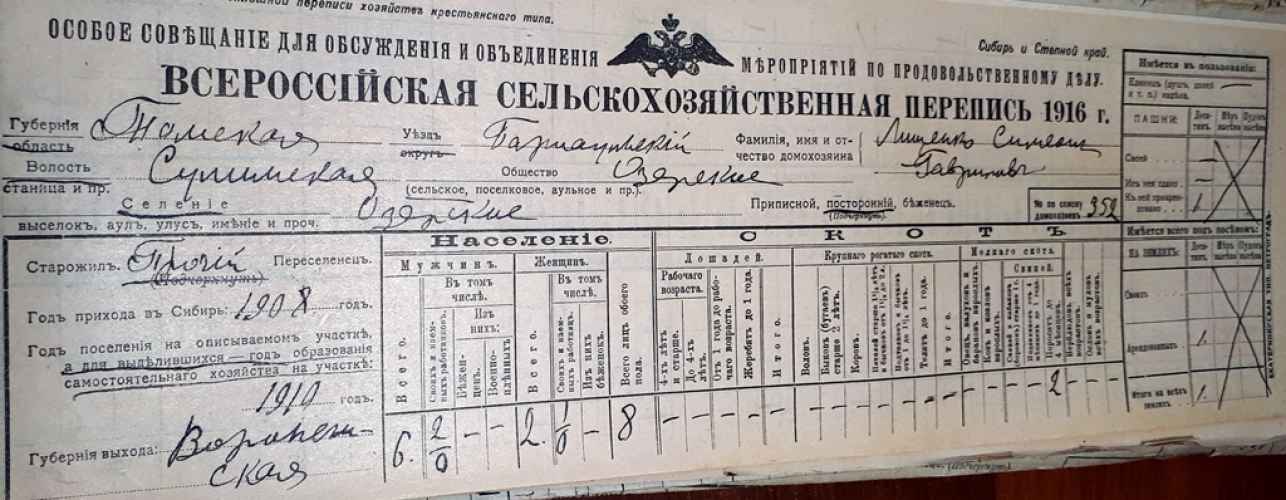 переписи хозяйствъ крестьянскаго типа.
ОСОБОЕ СОВѢЩАНІЕ ДЛЯ ОБСУЖДЕНІЯ И ОБЪЕДИНЕНІЯ
МѢРОПРІЯТІЙ ПО ПРОДОВОЛЬСТВЕННОМУ ДѢЛУ.
Сибирь и Степной край.
ВСЕРОССІЙСКАЯ СЕЛЬСКОХОЗЯЙСТВЕННАЯ ПЕРЕПИСЬ 1916 г.
Губернія Томская Уѣздъ Барнаульскій Фамилія, имя и от- Лищенко Симеонъ
область округъ чество домохозяина Гавриловъ
Волость Общество Озерское
станица и пр. (сельское, поселковое, аульное и пр.).
Селеніе Озерское Приписной, посторонній, бѣженецъ.
(Подчеркнуть).
выселокъ, аулъ, улусъ, имѣніе и проч.
№ по списку домохозяевъ 352
Старожилъ. Прочій Переселенецъ.
(Подчеркнуть)
Годъ прихода въ Сибирь: 1908 годъ.
Годъ поселенія на описываемомъ участкѣ,
а для выдѣлившихся — годъ образованія
самостоятельнаго хозяйства на участкѣ:
1910 годъ.
Губернія выхода: Воронеж-
ская
Населеніе.
Мужчинъ.
Всего.
Въ томъ числѣ.
Своихъ и наем-
ныхъ работниковъ.
Изъ нихъ:
Бѣжен-
цевъ.
Военно-
плѣнныхъ
Женщинъ.
Всего.
Въ томъ числѣ.
Своихъ и наем-
ныхъ работницъ.
Изъ нихъ
бѣженокъ.
Всего лицъ обоего
пола.
6. 2/0 – – 2. 1/0 – 8
СКОТЪ
Лошадей.
Рабочаго
возраста.
4-хъ лѣтъ
и старше.
До 4-хъ
лѣтъ.
Отъ 1 года до рабо-
чаго возраста.
Жеребятъ до 1 года.
Итого.
Крупнаго рогатаго скота.
Воловъ.
Быковъ (бугаевъ)
старше 2 лѣтъ.
Коровъ.
Телятъ до 1 года.
Итого.
Мелкаго скота.
Свиней.
– – – – – – – – – – – – – – – 2 – –
Имѣется въ пользованіи:
ПАШНИ:
Деся-
тинъ.
Своей
Изъ нея сдано
Къ ней прикрен-
довано 1
Имѣется всего подъ посѣвомъ:
НА ЗЕМЛЯХЪ:
Деся-
тинъ.
Своихъ
Арендованныхъ 1
Итого на всѣхъ
земляхъ 1.